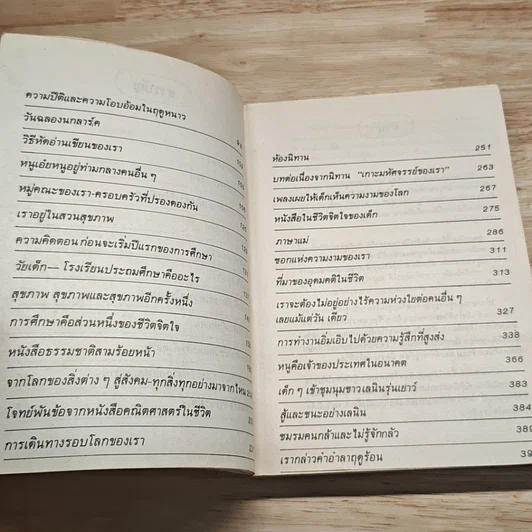 ความปิติและความโอบอ้อมในฤดูหนาว
วันฉลองนกลาร์ค
วิธีหัดอ่านเขียนของเรา
หนูเอ๋ยหนูอยู่ท่ามกลางคนอื่น ๆ
หมู่คณะของเรา-ครอบครัวที่ปรองดองกัน
เราอยู่ในสวนสุขภาพ
ความคิดตอน ก่อนจะเริ่มปีแรกของการศึกษา
วัยเด็ก— โรงเรียนประถมศึกษาคืออะไร
สุขภาพ สุขภาพและสุขภาพอีกครั้งหนึ่ง
การศึกษาคือส่วนหนึ่งของชีวิตจิตใจ
หนังสือธรรมชาติสามร้อยหน้า
จากโลกของสิ่งต่าง ๆ สู่สังคม-ทุกสิ่งทุกอย่างมาจากไหน
โจทย์พันข้อจากหนังสือคณิตศาสตร์ในชีวิต
การเดินทางรอบโลกของเรา
ห้องนิทาน 251
บทต่อเนื่องจากนิทาน "เกาะมหัศจรรย์ของเรา" 263
เพลงเผยให้เด็กเห็นความงามของโลก 267
หนังสือในชีวิตจิตใจของเด็ก 275
ภาษาแม่ 286
ซอกแห่งความงามของเรา 311
ที่มาของอุดมคติในชีวิต 313
เราจะต้องไม่อยู่อย่างไร้ความห่วงใยต่อคนอื่น ๆ
เลยแม้แต่วัน เดียว 327
การทำงานอิ่มเอิบไปด้วยความรู้สึกที่สูงส่ง 338
หนูคือเจ้าของประเทศในอนาคต 366
เด็ก ๆ เข้าชุมนุมชาวเลนินรุ่นเยาว์
สู้และชนะอย่างเลนิน 384
ชมรมคนกล้าและไม่รู้จักกลัว 389
เรากล่าวคำอำลาฤดูร้อน